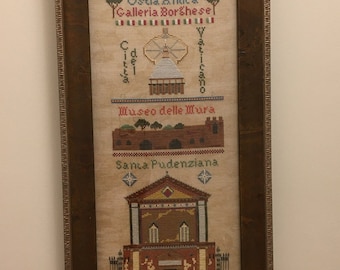 Ostia Antica
Galleria Borghese
Città
del
Vaticano
Museo delle Mura
Santa Pudenziana